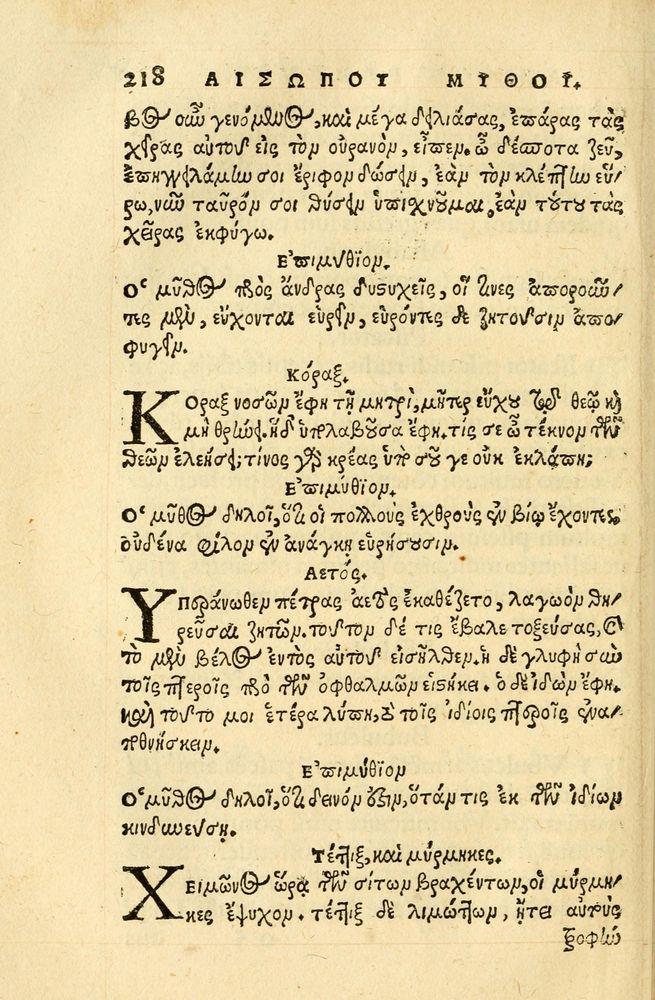 218 ΑΙΣΩΠΟΥ ΜΥΘΟΙ.
βος οὖν γενόμενος, καὶ μέγα δειλιάσας, ἐπάρας τὰς
χεῖρας αὐτοῦ εἰς τὸν οὐρανὸν, εἶπεν. ὦ δέσποτα ζεῦ,
ἐπηγγειλάμην σοι ἔριφον δώσειν, ἐὰν τὸν κλέπτην εὕ/
ρω, νῦν ταῦρόν σοι θύσειν ὑπισχνοῦμαι, ἐὰν τούτου τὰς
χεῖρας ἐκφύγω.
Ἐπιμύθιον.
Ὁ μῦθος πρὸς ἄνδρας δυστυχεῖς, οἵ τινες ἀποροῦν/
τες μὲν, εὔχονται εὑρεῖν, εὑρόντες δὲ ζητοῦσιν ἀπο/
φυγεῖν.
Κόραξ.
ΚΟραξ νοσῶν ἔφη τῇ μητρὶ, μῆτερ εὔχου τῷ θεῷ καὶ
μὴ θρήνει. ἡ δ' ὑπολαβοῦσα ἔφη. τίς σε ὦ τέκνον τῶν
θεῶν ἐλεήσει; τίνος γὰρ κρέας ὑπὸ σοῦ γε οὐκ ἐκλάπη;
Ἐπιμύθιον.
Ὁ μῦθος δηλοῖ, ὅτι οἱ πολλοὺς ἐχθροὺς ἐν βίῳ ἔχοντες,
οὐδένα φίλον ἐν ἀνάγκῃ εὑρήσουσιν.
Αετός.
ΥΠεράνωθεν πέτρας ἀετὸς ἐκαθέζετο, λαγωὸν θη/
ρεῦσαι ζητῶν. τοῦτον δέ τις ἔβαλε τοξεύσας, καὶ
τὸ μὲν βέλος ἐντὸς αὐτοῦ εἰσῆλθεν. ἡ δὲ γλυφὴ σὺν
τοῖς πτεροῖς πρὸ τῶν ὀφθαλμῶν εἱστήκει. ὁ δὲ ἰδὼν ἔφη.
καὶ τοῦτό μοι ἑτέρα λύπη, τὸ τοῖς ἰδίοις πτεροῖς ἐνα/
ποθνήσκειν.
Ἐπιμύθιον
Ὁ μῦθος δηλοῖ, ὅτι δεινόν ἐστιν, ὅτάν τις ἐκ τῶν ἰδίων
κινδυνεύσῃ.
Τέττιξ, καὶ μύρμηκες.
ΧΕιμῶνος ὥρᾳ τῶν σίτων βραχέντων, οἱ μύρμη/
κες ἔψυχον. τέττιξ δὲ λιμώττων, ᾔτει αὐτοὺς
τροφὴν